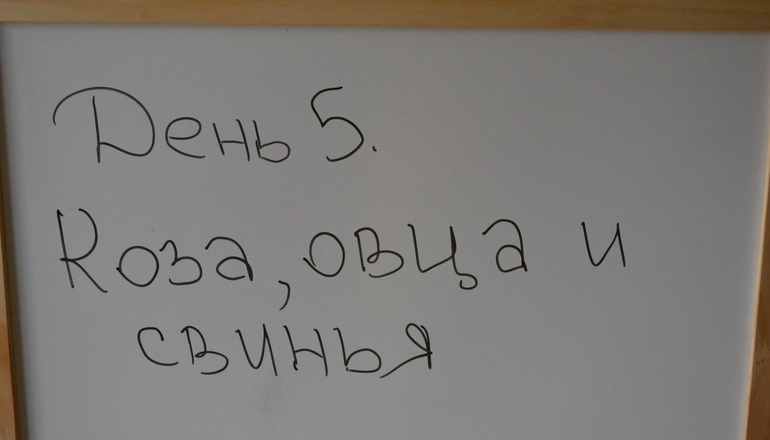 День 5.
Коза, овца и
свинья